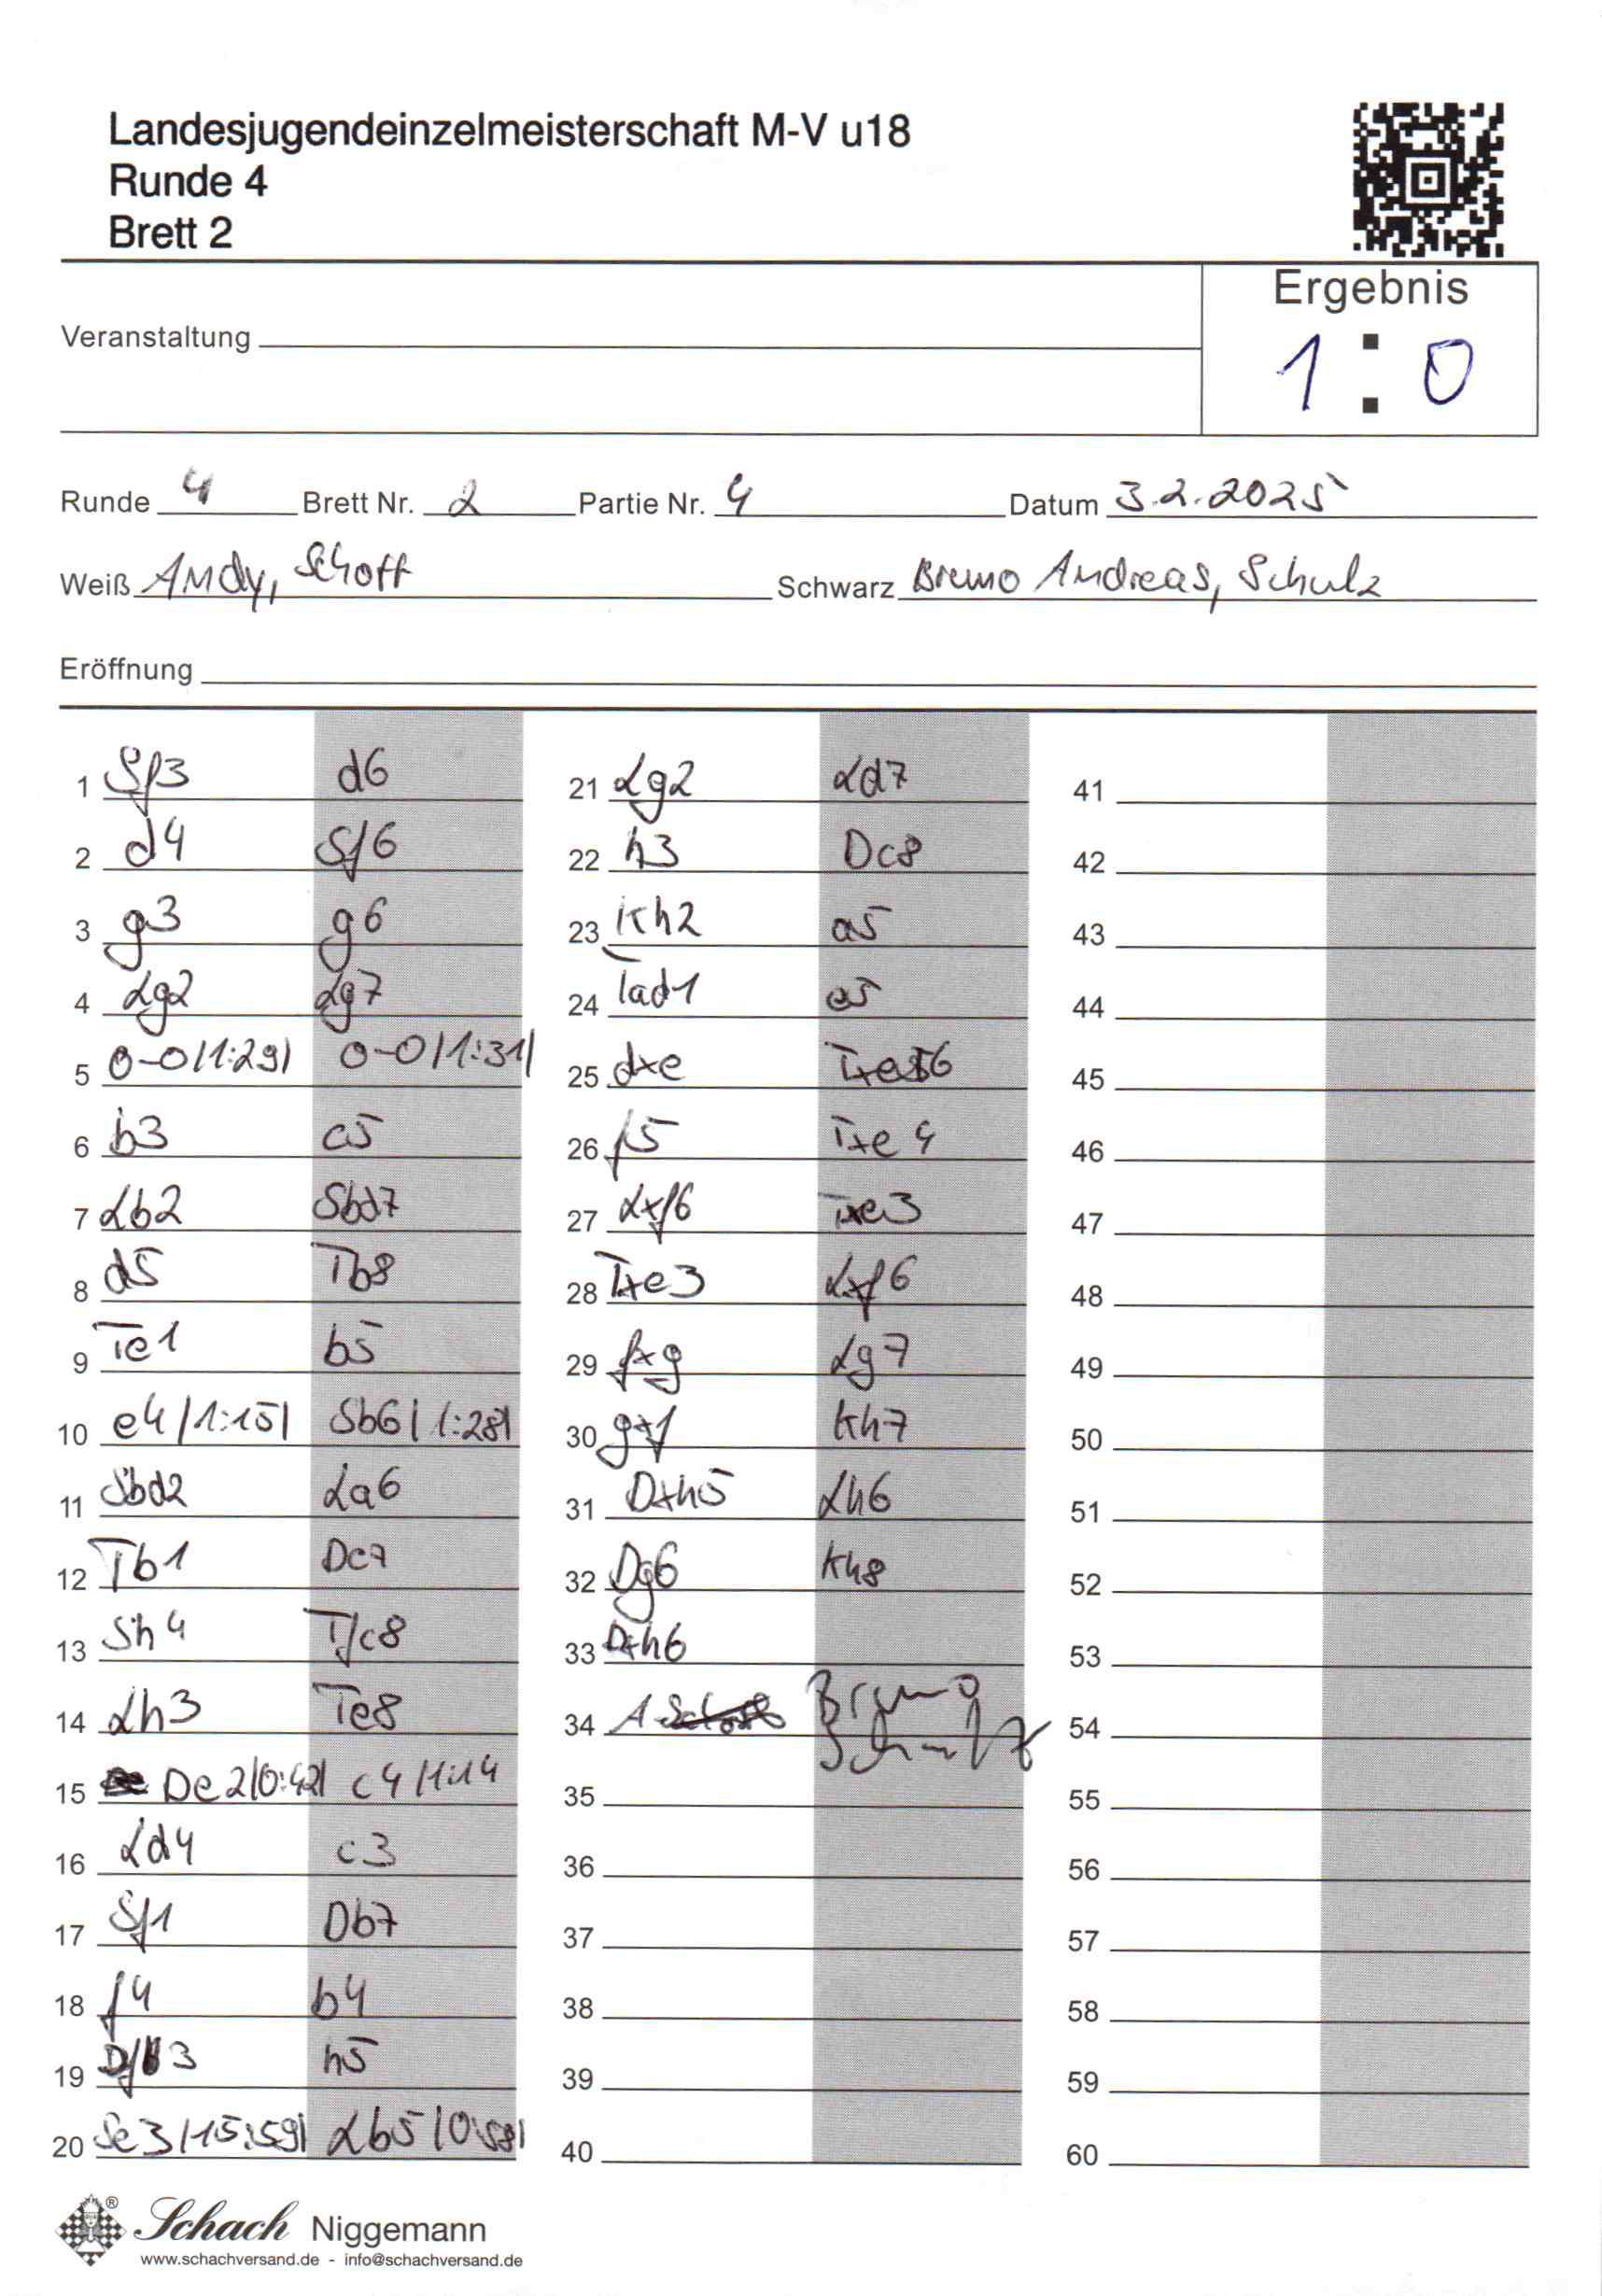 Landesjugendeinzelmeisterschaft M-V u18
Runde 4
Brett 2
Ergebnis
1 : 0
Veranstaltung
Runde 4 Brett Nr. 2 Partie Nr. 4 Datum 3.2.2025
Weiß Andy, Schoff Schwarz Bruno Andreas, Schulz
Eröffnung
1 Sf3 d6
2 d4 Sf6
3 g3 g6
4 Lg2 Lg7
5 0-0/1:29/ 0-0/1:31/
6 b3 c5
7 Lb2 Sbd7
8 d5 Tb8
9 Te1 b5
10 e4/1:15/ Sb6/1:28/
11 Sbd2 La6
12 Tb1 Dc7
13 Sh4 Tfc8
14 Lh3 Te8
15 De2/0:42/ c4/1:14
16 Ld4 c3
17 Sf1 Db7
18 f4 b4
19 Df3 h5
20 Se3/15:59/ Lb5/0:58/
21 Lg2 Ld7
22 h3 Dc8
23 Kh2 a5
24 Tad1 e5
25 dxe Txe6
26 f5 Txe4
27 Lxf6 Txe3
28 Txe3 Lxf6
29 fxg Lg7
30 gxf Kh7
31 Dxh5 Lh6
32 Dg6 Kh8
33 Dxh6
34 A Bruno
Schulz
35
36
37
38
39
40
41
42
43
44
45
46
47
48
49
50
51
52
53
54
55
56
57
58
59
60
Schach Niggemann
www.schachversand.de - info@schachversand.de